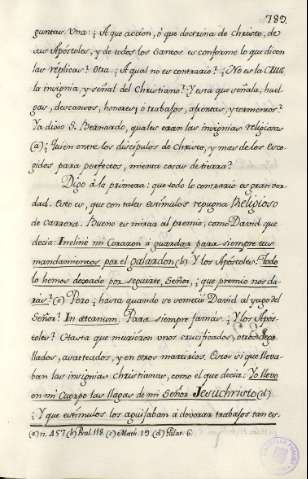 189.
guntas. Una: ¿A que accion, ó que doctrina de Christo, de
sus Apóstoles, y de todos los Santos es conforme lo que dicen
las réplicas? Otra: ¿A qual no es contrario? ¿No es la Cruz
la insignia, y señal del Christiano? Y esta que señala, huel-
gas, descansos, honores; o trabajos, afrentas, y tormentos?
Ya dixo S. Bernardo, quales eran las insignias religiosas
(a) ¿Quien entre los discipulos de Christo, y mas de los esco-
gidos para perfectos, mienta cosas de tierra?
Digo á lo primero: que todo lo contrario es gran ver-
dad. Esto es, que con tales estímulos repugna Religioso
de carrera. Bueno es mirar al premio, como David que
decia: Incliné mi Corazon á guardar para siempre tus
mandamientos por el galardon (b) Y los Apóstoles: Todo
lo hemos dexado por seguirte, Señor, ¿que premio nos da-
rás? (c) Pero ¿hasta quando se sometió David al yugo del
Señor? In æternum. Para siempre jamas. ¿Y los Após-
toles? Hasta que murieron unos crucificados, otros dego-
llados, asaeteados, y en otros martirios. Estos sí que lleva-
ban las insignias Christianas, como el que decia: Yo llevo
en mi Cuerpo las llagas de mi Señor Jesuchristo (d)
¿Y que estímulos los aguijaban á devorar trabajos tan es-
(a) n. 457 (b) Psal. 118. (c) Math. 19. (d) Galat. 6.